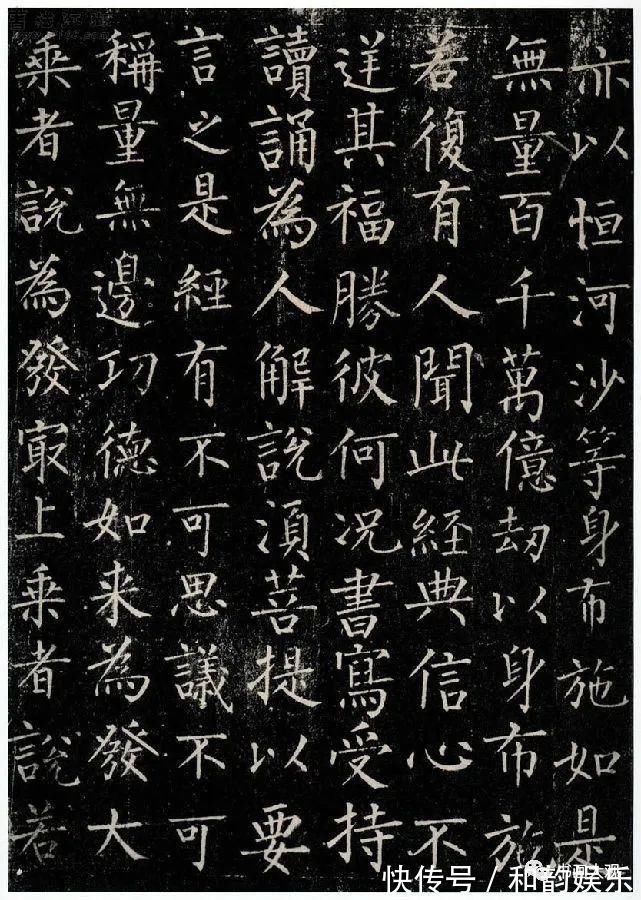 亦以恒河沙等身布施如是
無量百千萬億劫以身布施
若復有人聞此經典信心不
逆其福勝彼何況書寫受持
讀誦為人解說須菩提以要
言之是經有不可思議不可
稱量無邊功德如来為發大
乘者說為發㝡上乘者說若
快传号/和韵娱乐